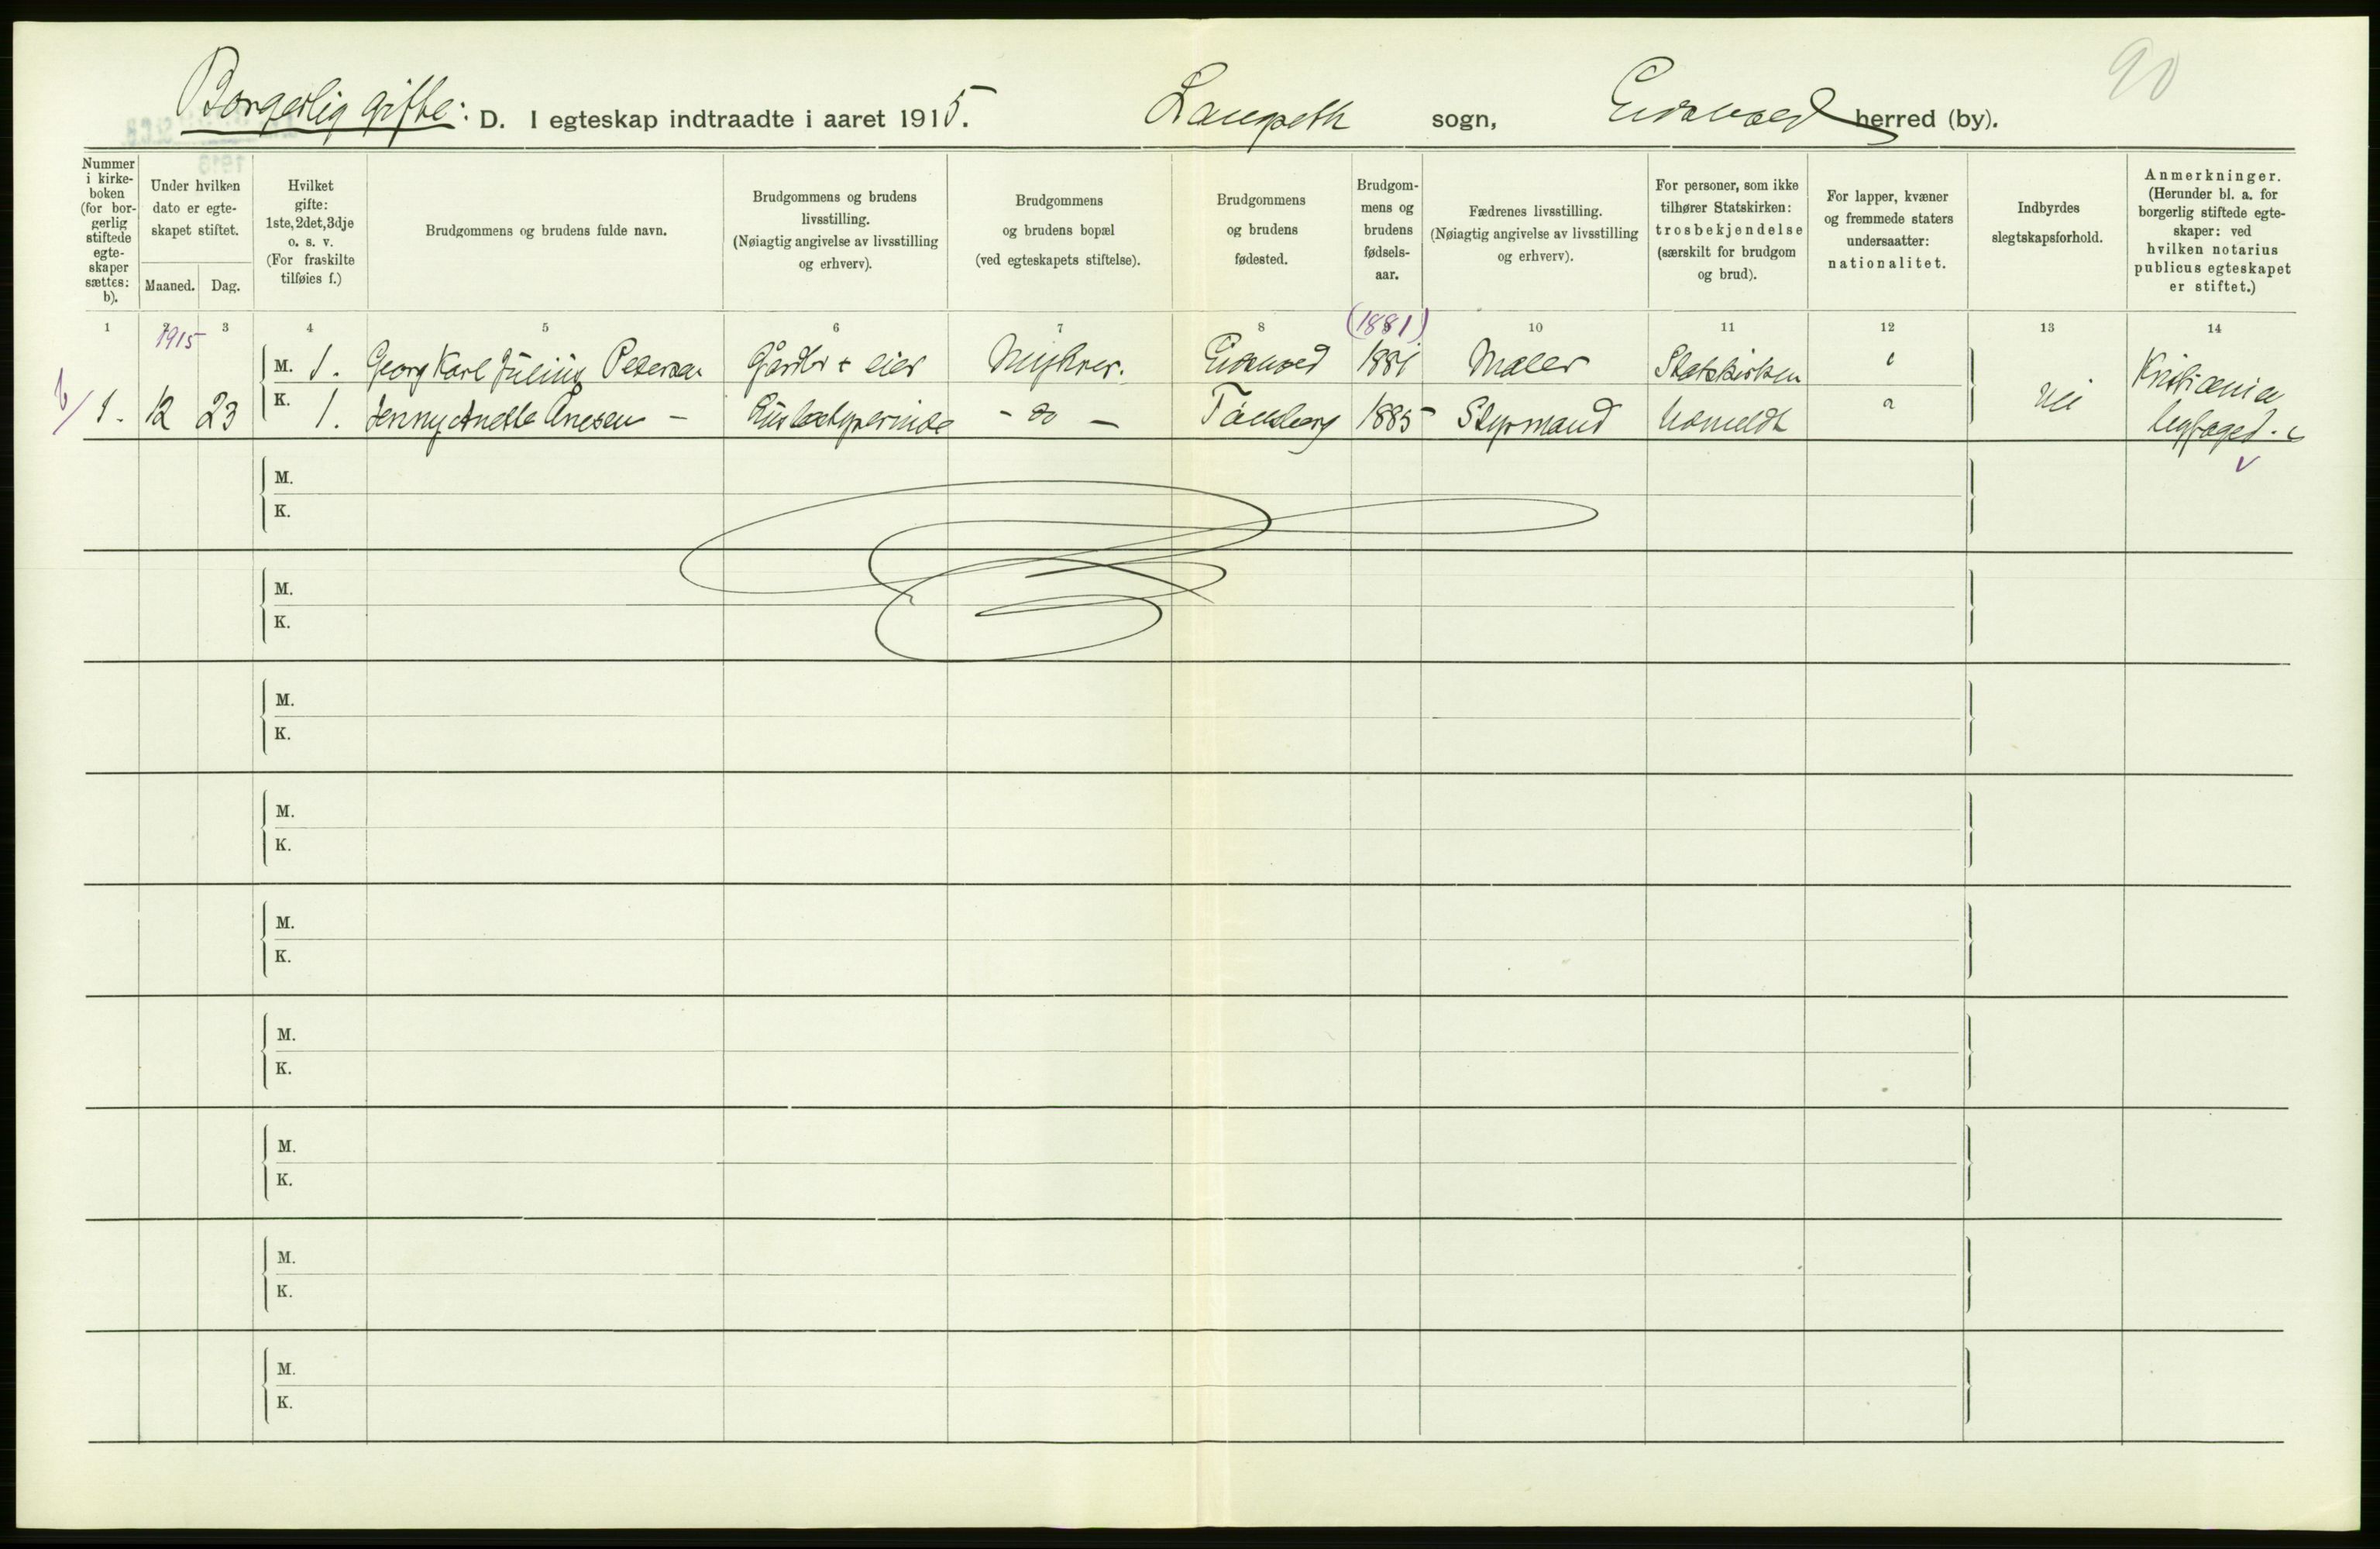 90
Borgerlig gifte: D. I egteskap indtraadte i aaret 1915. Langseth sogn, Eidsvold herred (by).
Nummer i kirke-boken (for bor-gerlig stiftede egte-skaper sættes: b).
Under hvilken dato er egte-skapet stiftet.
Maaned. Dag.
Hvilket gifte: 1ste, 2det, 3dje o. s. v. (For fraskilte tilføies f.)
Brudgommens og brudens fulde navn.
Brudgommens og brudens livsstilling. (Nøiagtig angivelse av livsstilling og erhverv).
Brudgommens og brudens bopæl (ved egteskapets stiftelse).
Brudgommens og brudens fødested.
Brudgom-mens og brudens fødsels-aar.
Fædrenes livsstilling. (Nøiagtig angivelse av livsstilling og erhverv).
For personer, som ikke tilhører Statskirken: trosbekjendelse (særskilt for brudgom og brud).
For lapper, kvæner og fremmede staters undersaatter: nationalitet.
Indbyrdes slegtskapsforhold.
Anmerkninger. (Herunder bl. a. for borgerlig stiftede egte-skaper: ved hvilken notarius publicus egteskapet er stiftet.)
1 2 3 4 5 6 7 8 9 10 11 12 13 14
1915 (1881)
M. 1. Georg Karl Julius Petersen Gårdbr + eier Eidsvold 1881 Maler Statskirken Kristiania
b/ 1. 12 23 K. 1. Jenny Anette - - do - Tønsberg 1885 Styrmand Udmeldt Nei byfoged.
M.
K.
M.
K.
M.
K.
M.
K.
M.
K.
M.
K.
M.
K.
M.
K.
M.
K.